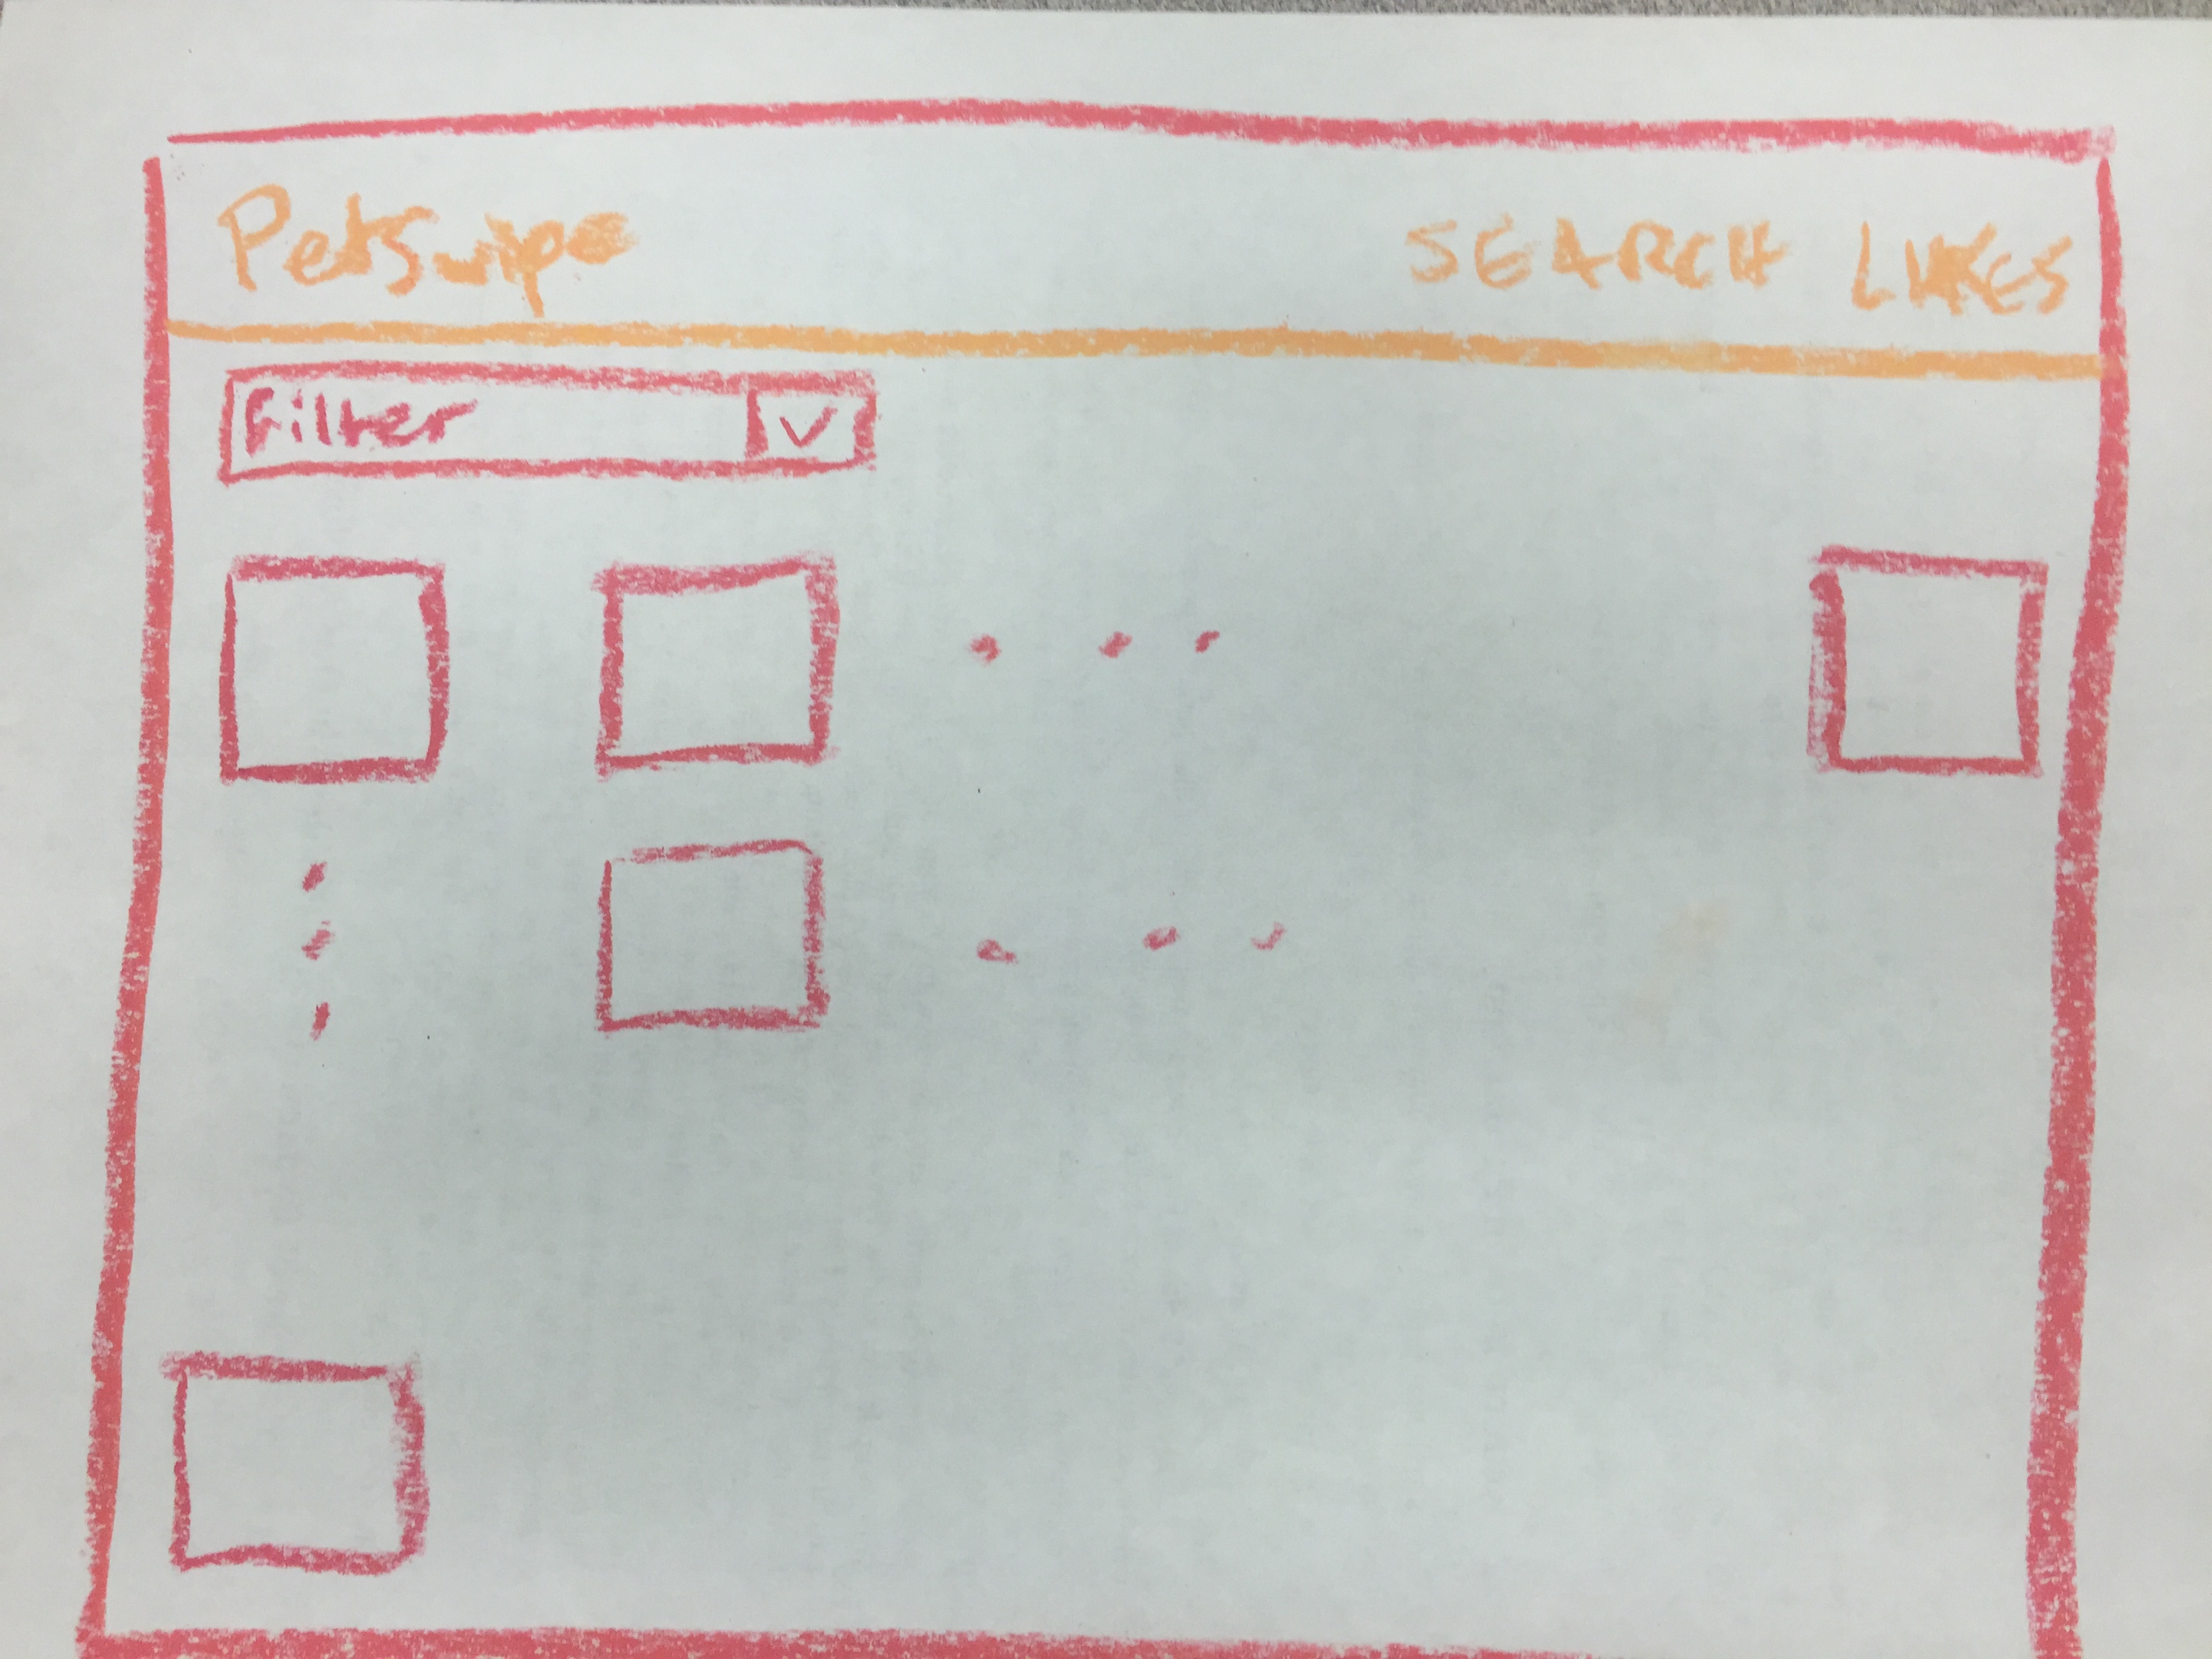 PetSwipe
SEARCH LIKES
Filter